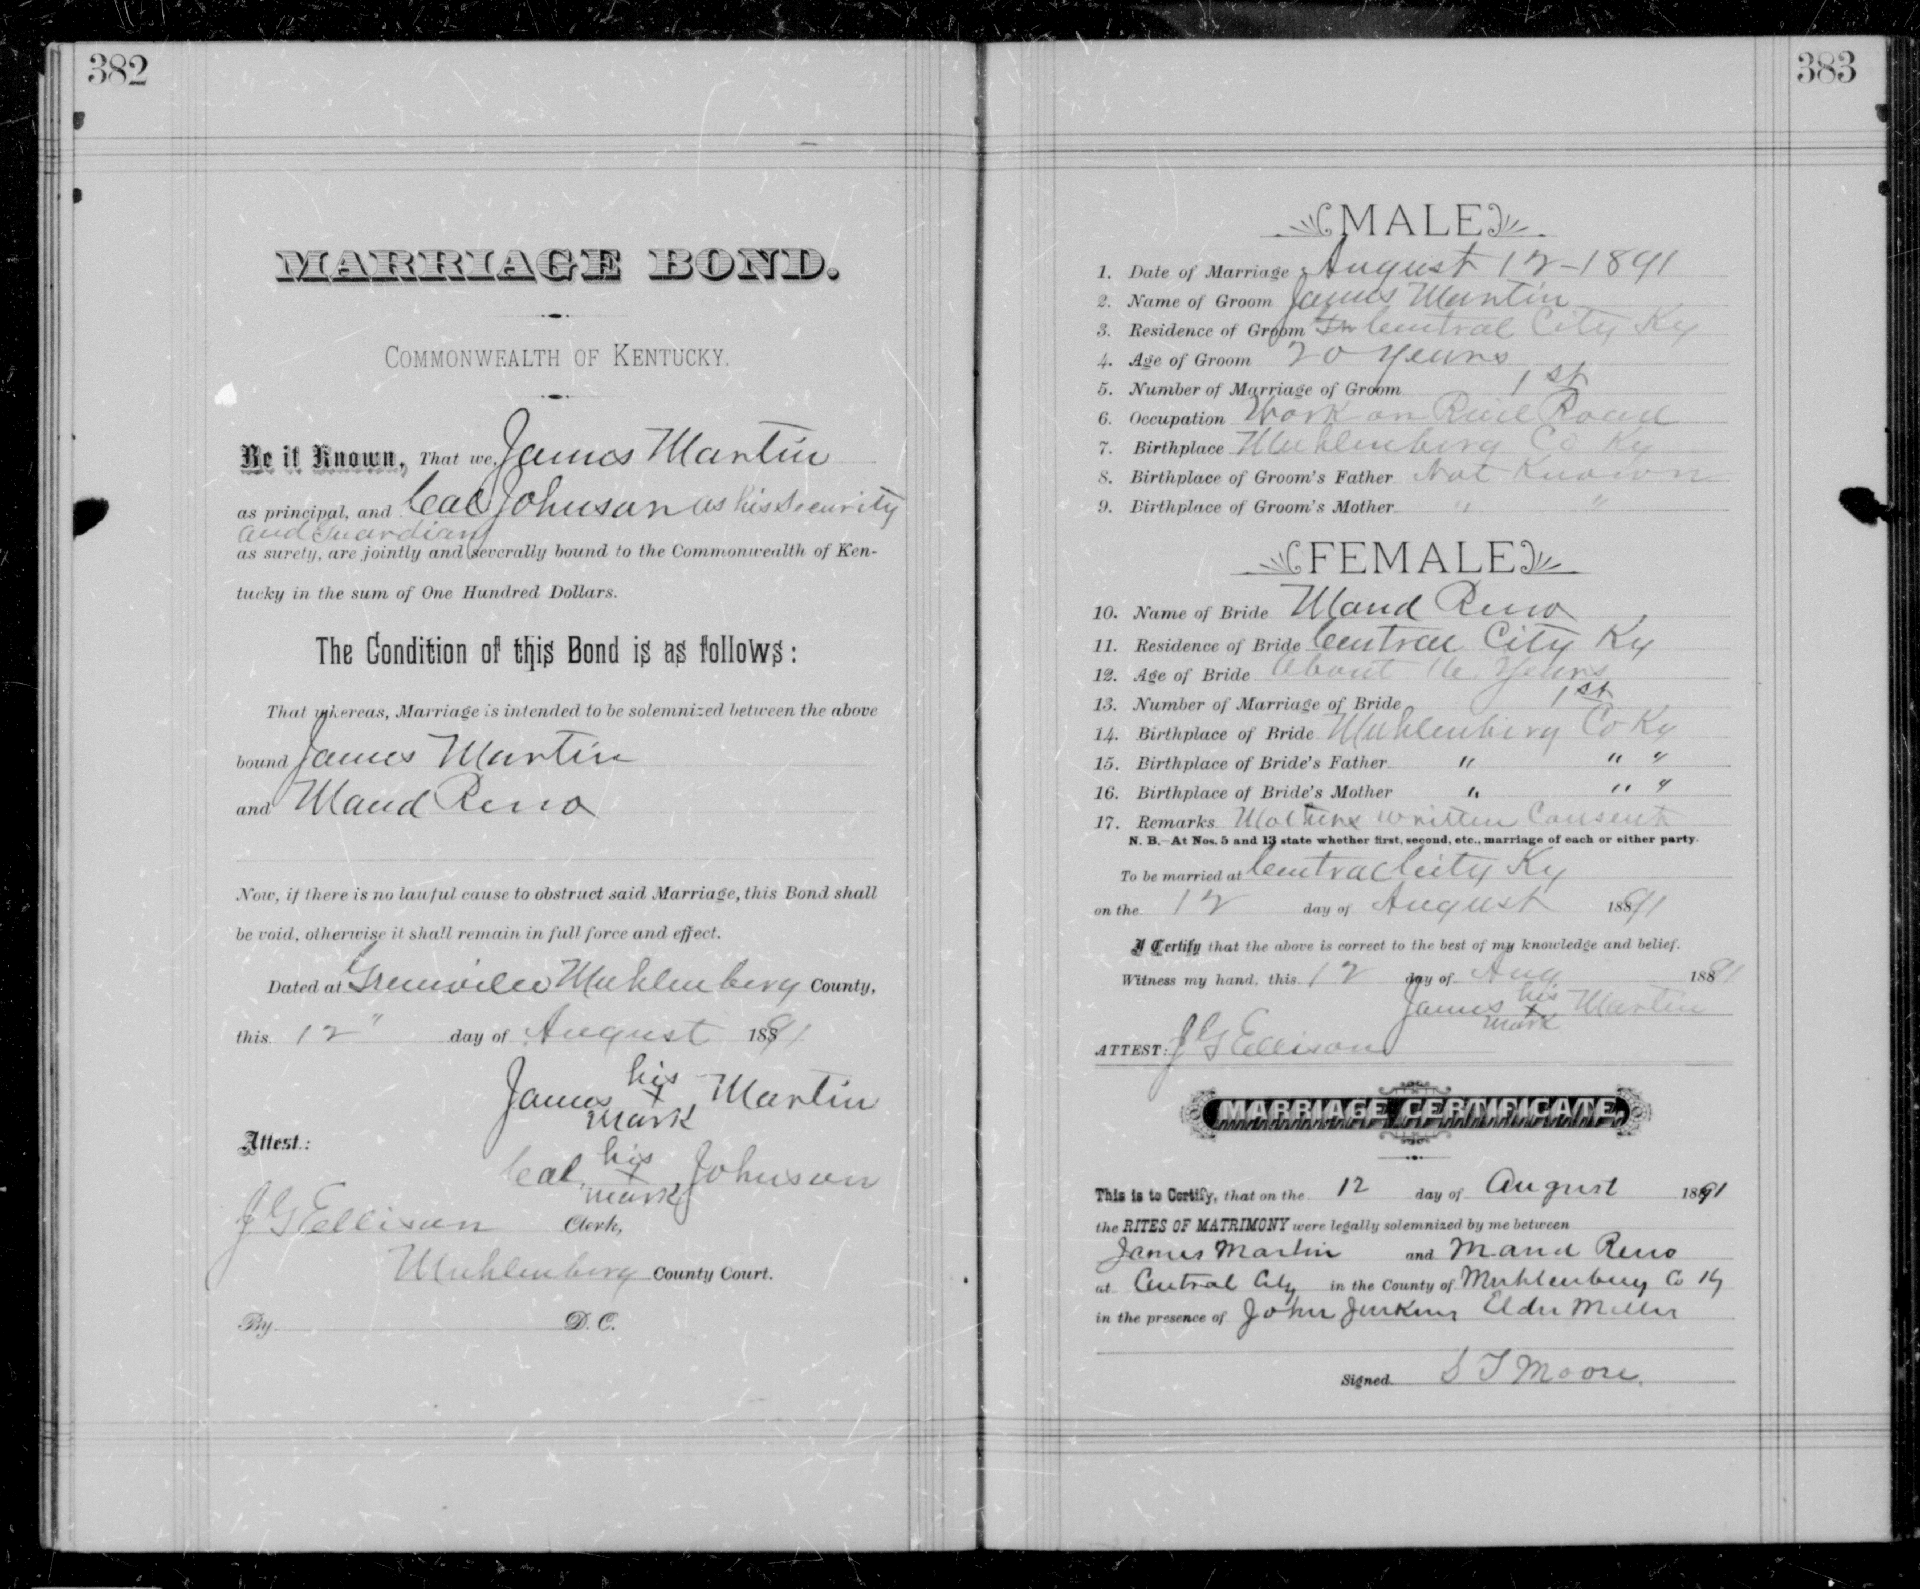 382
MARRIAGE BOND.
COMMONWEALTH OF KENTUCKY.
Be it Known, That we, James Martin
as principal, and Cal Johnson as his Security
and Guardian
as surety, are jointly and severally bound to the Commonwealth of Ken-
tucky in the sum of One Hundred Dollars.
The Condition of this Bond is as follows:
That whereas, Marriage is intended to be solemnized between the above
bound James Martin
and Maud Reno
Now, if there is no lawful cause to obstruct said Marriage, this Bond shall
be void, otherwise it shall remain in full force and effect.
Dated at Greenville Muhlenberg County,
this 12" day of August 1891
James his x mark Martin
Attest:
Cal his x mark Johnson
J G Ellison Clerk,
Muhlenberg County Court.
By D. C.
383
MALE
1. Date of Marriage August 12-1891
2. Name of Groom James Martin
3. Residence of Groom Central City Ky
4. Age of Groom 20 years
5. Number of Marriage of Groom 1st
6. Occupation Work on Rail Road
7. Birthplace Muhlenberg Co Ky
8. Birthplace of Groom's Father Not Known
9. Birthplace of Groom's Mother " "
FEMALE
10. Name of Bride Maud Reno
11. Residence of Bride Central City Ky
12. Age of Bride About 16 Years
13. Number of Marriage of Bride 1st
14. Birthplace of Bride Muhlenberg Co Ky
15. Birthplace of Bride's Father " " "
16. Birthplace of Bride's Mother " " "
17. Remarks Mothers written Consent
N. B.—At Nos. 5 and 13 state whether first, second, etc., marriage of each or either party.
To be married at Central City Ky
on the 12 day of August 1891
I Certify that the above is correct to the best of my knowledge and belief.
Witness my hand, this 12 day of Aug 1891
James his x mark Martin
ATTEST: J G Ellison
MARRIAGE CERTIFICATE.
This is to Certify, that on the 12 day of August 1891
the RITES OF MATRIMONY were legally solemnized by me between
James Martin and Maud Reno
at Central City in the County of Muhlenburg Co Ky
in the presence of John Jenkins Elder Miller
Signed S T Moore.